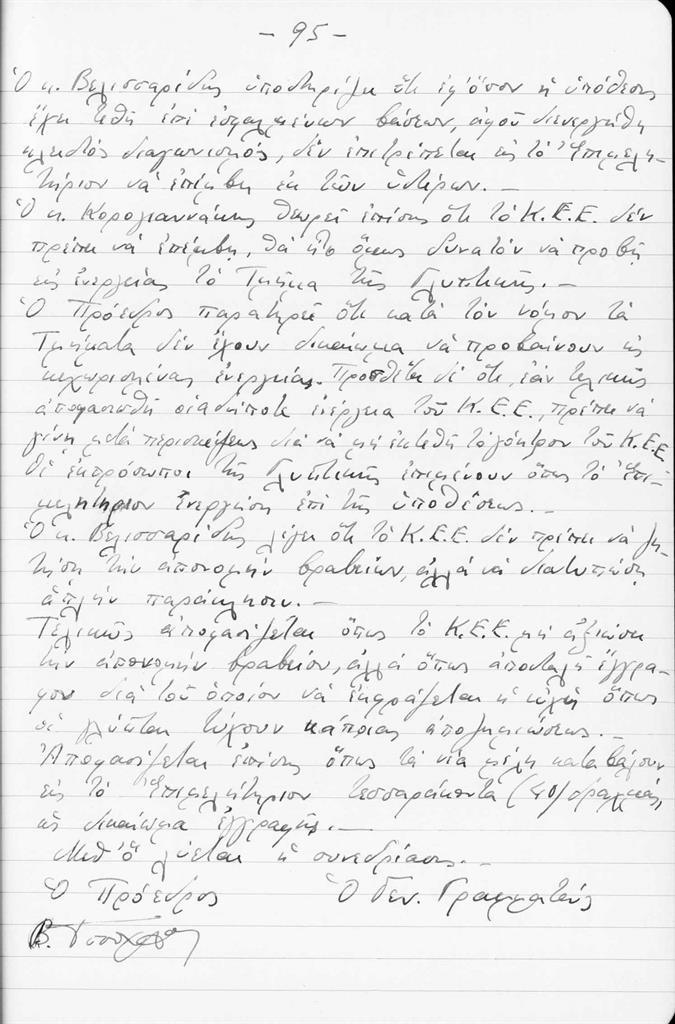 - 95 -
Ὁ κ. Βελισσαρίδης ὑποστηρίζει ὅτι ἐφ' ὅσον ἡ ὑπόθεσις
ἔχει τεθῆ ἐπί ἐσφαλμένων βάσεων, ἀφοῦ διενεργήθη
κλειστός διαγωνισμός, δέν ἐπιτρέπεται εἰς τό Ἐπιμελη-
τήριον νά ἐπέμβη ἐκ τῶν ὑστέρων. -
Ὁ κ. Κορογιαννάκης θεωρεῖ ἐπίσης ὅτι τό Κ.Ε.Ε. δέν
πρέπει νά ἐπέμβη, θά ἦτο ὅμως δυνατόν νά προβῆ
εἰς ἐνεργείας τό Τμῆμα τῆς Γλυπτικῆς. -
Ὁ Πρόεδρος παρατηρεῖ ὅτι κατά τόν νόμον τά
Τμήματα δέν ἔχουν δικαίωμα νά προβαίνουν εἰς
κεχωρισμένας ἐνεργείας. Προσθέτει δέ ὅτι, ἐάν τελικῶς
ἀποφασισθῆ οἱαδήποτε ἐνέργεια τοῦ Κ.Ε.Ε., πρέπει νά
γίνη μετά περισκέψεως διά νά μή ἐκτεθῆ τό γόητρον τοῦ Κ.Ε.Ε.
Οἱ ἐκπρόσωποι τῆς Γλυπτικῆς ἐπιμένουν ὅπως τό Ἐπι-
μελητήριον ἐνεργήση ἐπί τῆς ὑποθέσεως. -
Ὁ κ. Βελισσαρίδης λέγει ὅτι τό Κ.Ε.Ε. δέν πρέπει νά ζη-
τήση τήν ἀπονομήν βραβείων, ἀλλά νά διατυπώση
ἁπλῆν παράκλησιν. -
Τελικῶς ἀποφασίζεται ὅπως τό Κ.Ε.Ε. μή ἀξιώση
τήν ἀπονομήν βραβείου, ἀλλά ὅπως ἀποσταλῆ ἔγγρα-
φον διά τοῦ ὁποίου νά ἐκφράζεται ἡ εὐχή ὅπως
οἱ γλύπται τύχουν κάποιας ἀποζημιώσεως. -
Ἀποφασίζεται ἐπίσης ὅπως τά νέα μέλη καταβάλουν
εἰς τό Ἐπιμελητήριον τεσσαράκοντα (40) δραχμάς,
ὡς δικαίωμα ἐγγραφῆς. -
Μεθ' ὅ λύεται ἡ συνεδρίασις. -
Ὁ Πρόεδρος Ὁ Γεν. Γραμματεύς
Β.